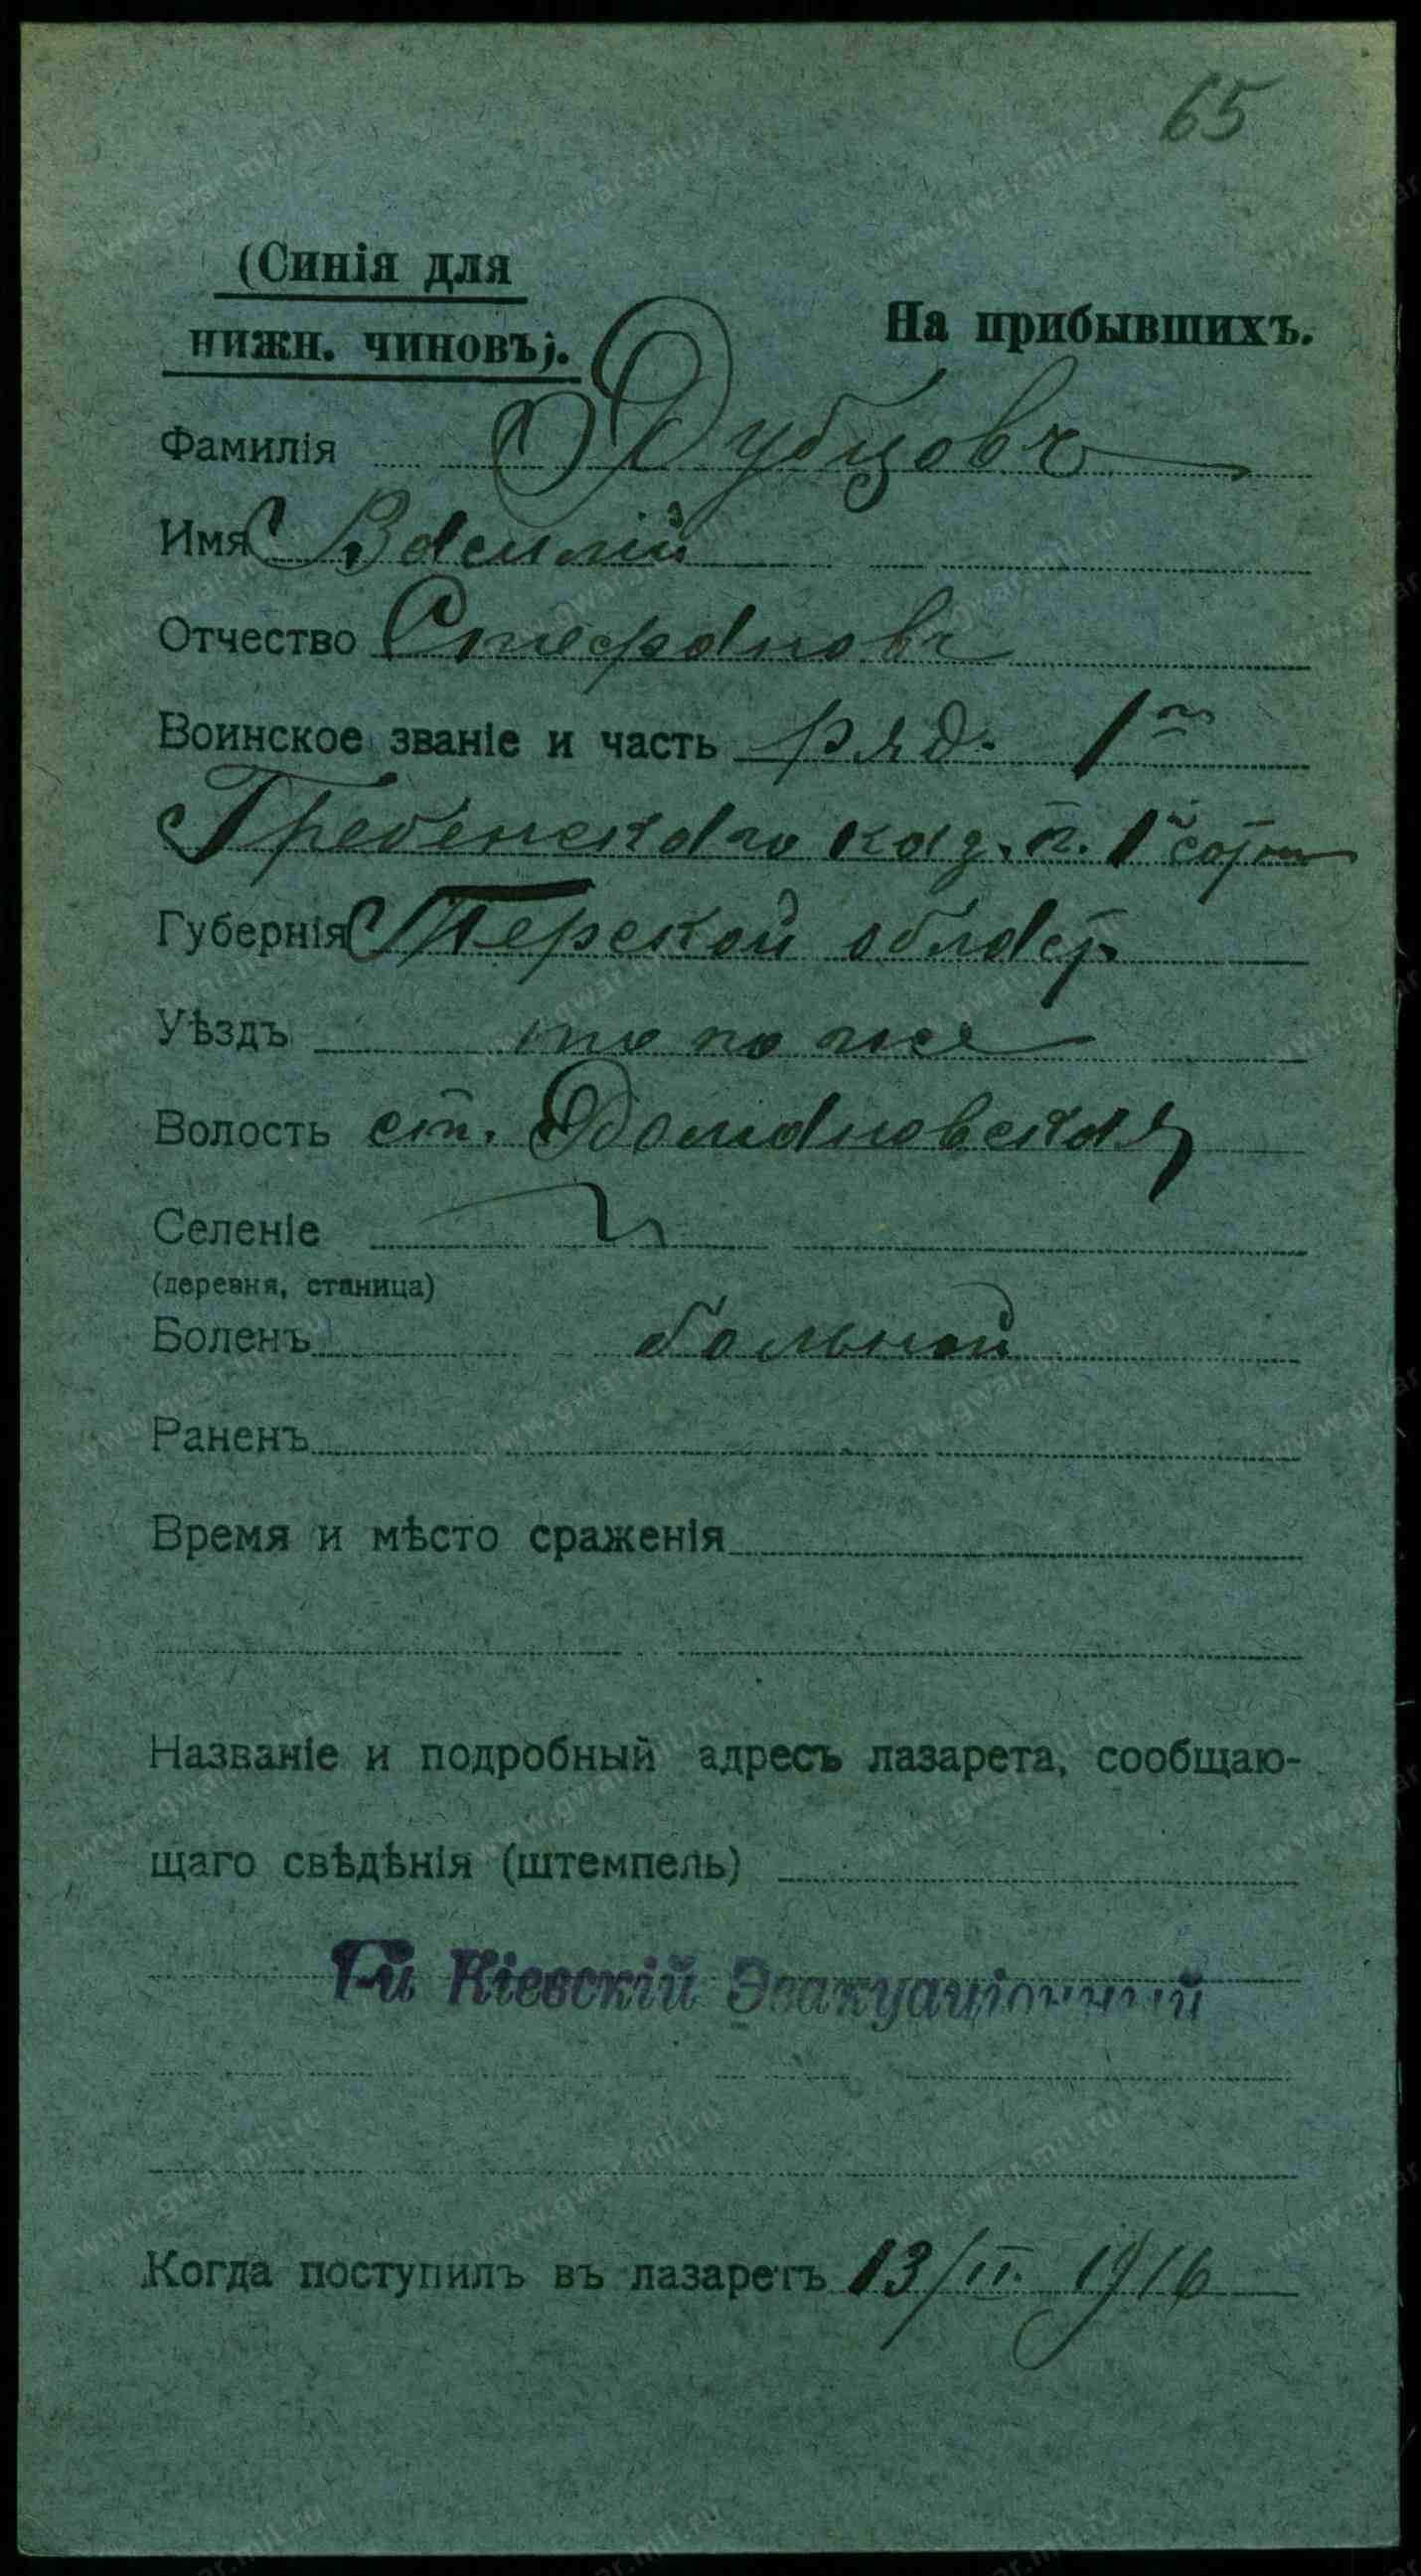 65
(Синія для
нижн. чиновъ).
На прибывшихъ.
Фамилія Дубцовъ
Имя Василій
Отчество Стефановъ
Воинское званіе и часть ряд. 1го
Гребенскаго каз. п. 1й сотни
Губернія Терской област.
Уѣздъ
Волость ст.
Селеніе
(деревня, станица)
Боленъ больной
Раненъ
Время и мѣсто сраженія
Названіе и подробный адресъ лазарета, сообщаю-
щаго свѣдѣнія (штемпель)
1-й Кіевскій Эвакуаціонный
Когда поступилъ въ лазаретъ 13/II. 1916